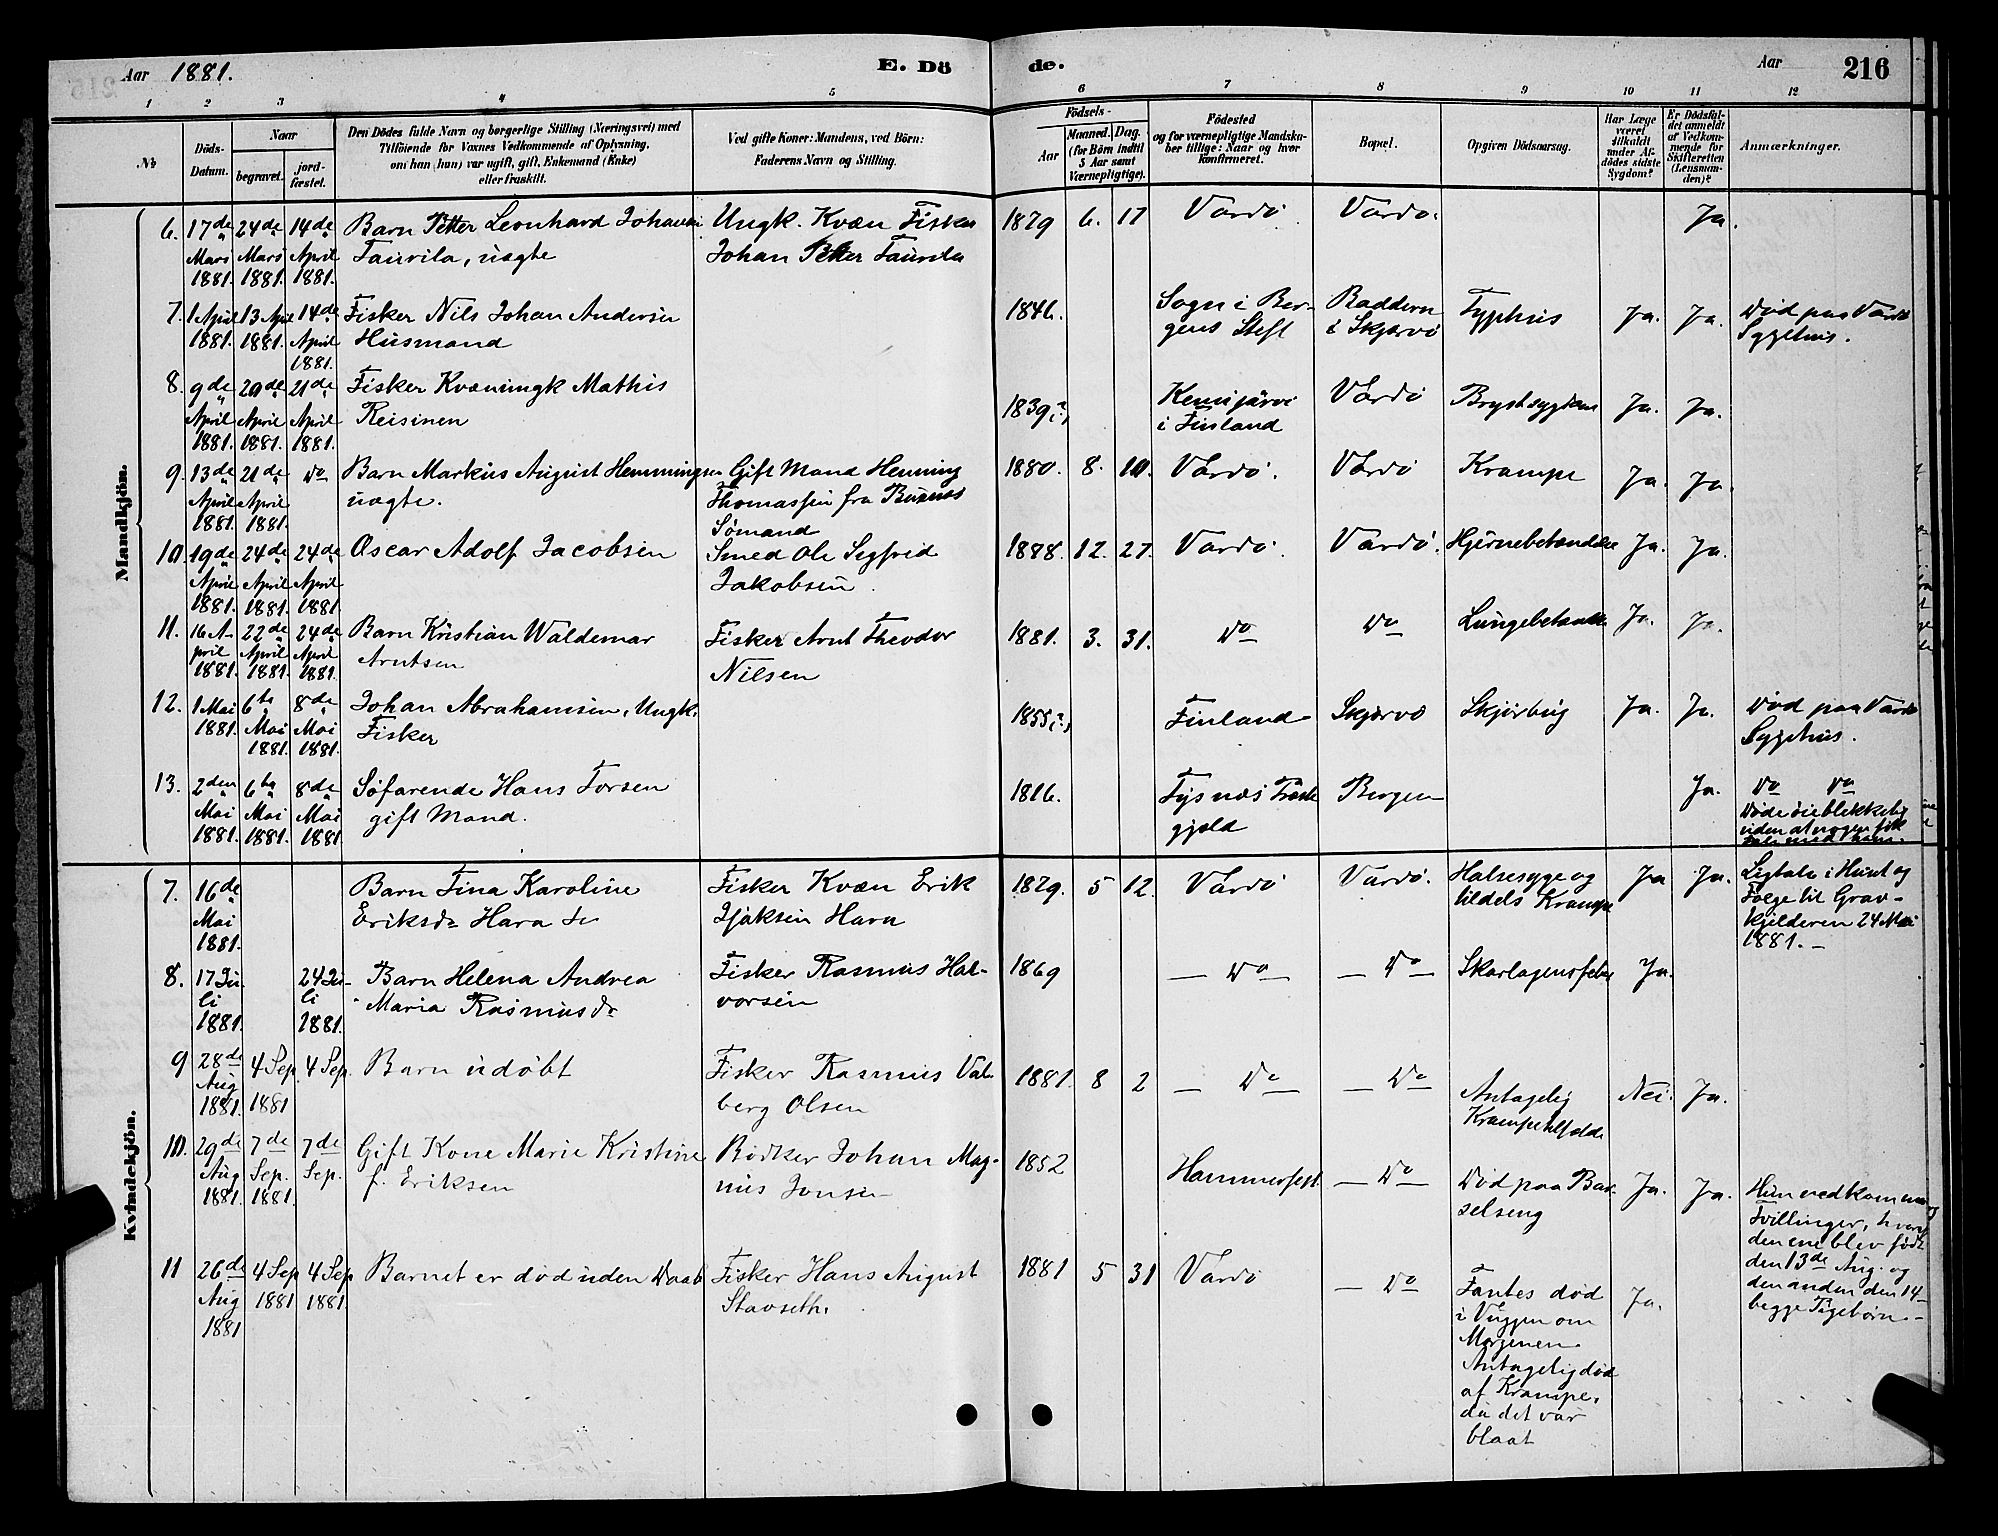 Aar 1881. E. Döde. Aar 216
1 2 3 4 5 6 7 8 9 10 11 12
№
Döds-Datum.
Naar
begravet.
jord-fæstet.
Den Dödes fulde Navn og borgerlige Stilling (Næringsvei) med
Tilföiende for Voxnes Vedkommende af Oplysning,
om han (hun) var ugift, gift, Enkemand (Enke)
eller fraskilt.
Ved gifte Koner: Mandens, ved Börn:
Faderens Navn og Stilling.
Födsels-
Aar
Maaned. Dag.
(for Börn indtil
5 Aar samt
Værnepligtige).
Födested
og for værnepligtige Mandska-
ber tillige: Naar og hvor
konfirmeret.
Bopæl.
Opgiven Dödsaarsag.
Har Læge
været
tilkaldt
under Af-
dödes sidste
Sygdom?
Er Dödsfal-
det anmeldt
af Vedkom-
mende for
Skifteretten
(Lensman-
den)?
Anmærkninger.
Mandkjön.
6. 17de Mars 1881. 24de Mars 1881. 14de April 1881.
Barn Petter Leonhard Johansen
Taurila, uægte
Ungk. Kvæn Fisker
Johan Petter Taurila
1879 6. 17 Vardö Vardö. Ja.
7. 1 April 1881. 13 April 1881. 14de April 1881.
Fisker Nils Johan Andersen
Husmand
1846.
Sogn i Ber-
gens Stift
Baddern
i Skjærvö
Typhus Ja. Ja.
Död paa Vardö
Sygehus.
8. 9de April 1881. 20de April 1881. 21de April 1881.
Fisker Kvænungk Mathis
Reisinen
1839(?)
Kemijärvi
i Finland
Vardö Brystsygdom Ja. Ja.
9. 13de April 1881. 21de April 1881. Do
Barn Markus August Hemmingsen
uægte.
Gift Mand Henning
Thomassen fra
Sömand
1880. 8. 10. Vardö. Vardö Krampe Ja. Ja.
10. 19de April 1881. 24de April 1881. 24de April 1881.
Oscar Adolf Jacobsen
Smed Ole Sigfrid
Jakobsen.
1878. 12. 27. Vardö. Vardö. Hjernebetændelse Ja. Ja.
11. 16 April 1881. 22de April 1881. 24de April 1881.
Barn Kristian Waldemar
Arntsen
Fisker Arnt Theodor
Nilsen
1881. 3. 31. Do Do Lungebetændelse Ja. Ja.
12. 1 Mai 1881. 6te Mai 1881. 8de Mai 1881.
Johan Abrahamsen, Ungk.
Fisker
1855(?) Finland Skjærvö Skjörbug Ja. Ja.
Död paa Vardö
Sygehus.
13. 2den Mai 1881. 6te Mai 1881. 8de Mai 1881
Söfarende Hans Torsen
gift Mand.
1816.
Tysnæs Præste
gjæld
Bergen Ja.
Do Do
Döde öieblikkelig
uden at nogen fik
tale med ham.
Kvindekjön.
7. 16de Mai 1881.
Barn Tina Karoline
Eriksdr Hara
Fisker Kvæn Erik
Isaksen Hara
1879. 5 12. Vardö Vardö.
Halsesyge og
tildels Krampe
Ja Ja.
Ligtale i Huset og
Fölge til Grav-
kjelderen 24 Mai
1881. —
8. 17 Juli 1881. 24 Juli 1881.
Barn Helena Andrea
Maria Rasmusdr
Fisker Rasmus Hal-
vorsen
1869 — Do — — Do — Skarlagensfeber Ja.
9 28de Aug 1881. 4 Sep 1881 4 Sep.
Barn udöbt
Fisker Rasmus Val-
berg Olsen
1881. 8 2 — Do — — Do —
Antagelig
Krampetilfælde
Nei. Ja.
10. 29de Aug 1881. 7de Sep. 1881. 7de Sep.
Gift Kone Marie Kristine
f. Eriksen
Bödker Johan Mag-
nus Jonsen
1852 Hammerfest. — Do —
Död paa Bar-
selseng
Ja. Ja.
Hun nedkom med
Tvillinger, hvoraf
den ene blev födt
den 13de Aug. og
den anden den 14—
begge Pigebörn.—
11 26de Aug 1881 4 Sep 1881 4 Sep 1881.
Barnet er död uden Daab
Fisker Hans August
Stavseth.
1881 5 31 Vardö — Do —
Fantes död
i Vuggen om
Morgenen.
Antagelig död
af Krampe,
da det var
blaat
Ja.